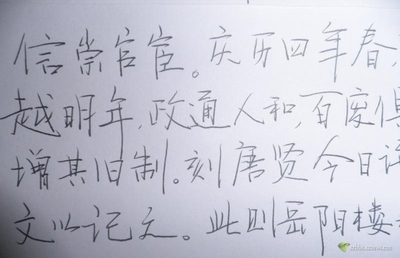 信崇官宦。庆历四年春,
越明年,政通人和,百废俱
增其旧制。刻唐贤今日诗
文以记之。此则岳阳楼